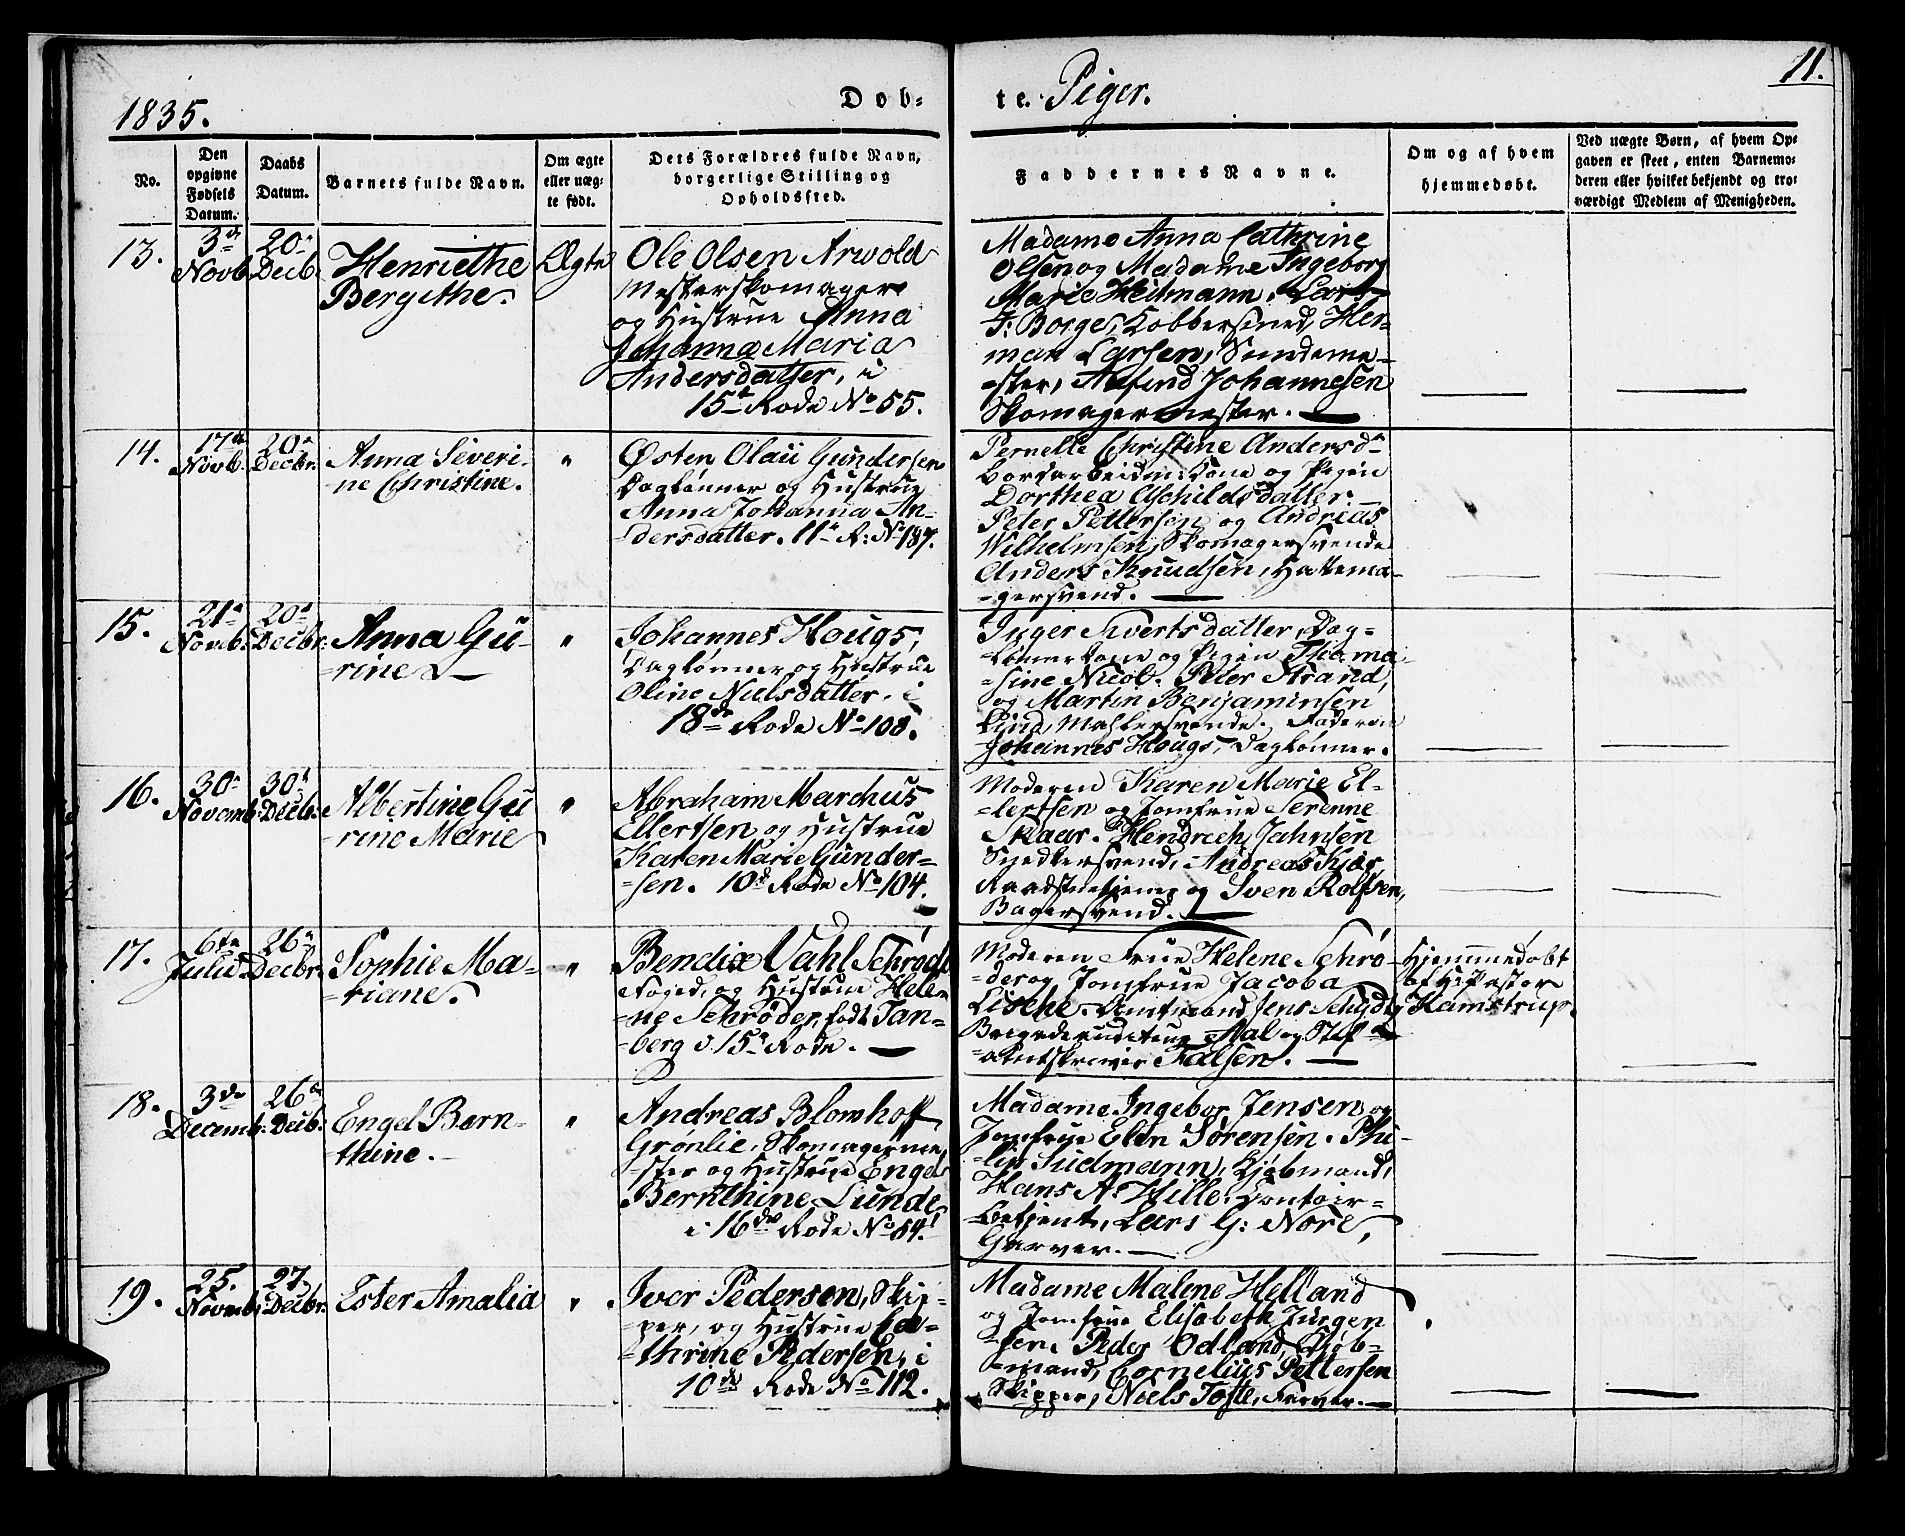 11.
1835.
Døb-
te. Piger.
No.
Den opgivne Fødsels Datum.
Daabs Datum.
Barnets fulde Navn.
Om ægte eller uægte født.
Dets Forældres fulde Navn, borgerlige Stilling og Opholdssted.
Faddernes Navne.
Om og af hvem hjemmedøbt.
Ved uægte Børn, af hvem Opgaven er skeet, enten Barnemoderen eller hvilket bekjendt og troværdigt Medlem af Menigheden.
13.
3de Novb.
20de Decb.
Henriethe
Bergithe.
Ægte
Ole Olsen Arwold
Mesterskomager
og Hustrue Anna
Johanna Maria
Andersdatter, i
15de Rode No 55.
Madame Anna Cathrine
Olsen og Madame Ingeborg
Marie Heitmann. Lars
J: Borge, Kobbersmed, Her-
man Larsen, Smedeme-
-ster, Johannesen
Skomagermester. —
14.
17de Novb.
20de Decbr.
Anna Severi-
ne Christine.
"
Østen Olaii Gundersen
Daglønner og Hustrue
Anna Johanna An-
-dersdatter. 11te R: No 187.
Pernelle Christine Andersdr
Kone og Pigen
Dorthea Eschildsdatter.
Peter Pettersen og Andrias
Wilhelmsen, Skomagersvende
Anders Knudsen, Hattema-
-gersvend. —
15.
21de Novb.
20de Decbr:
Anna Gu-
-rine. —
"
Johannes Hougs,
Daglønner og Hustrue
Oline Nielsdatter. i
18de Rode No 108.
Inger Sivertsdatter, Dag-
-lønnerkone og Pigen Thoma-
-sine Nicol. Peter Strand,
og Martin Benjaminsen
Lind, Mahlersvende. Faderen
Johannes Hougs, Daglønner.
16.
30te Novemb:
30te Decbr:
Albertine Gu
-rine Marie
"
Abraham Marchus
Ellertsen og Hustrue
Karen Marie Gunder-
-sen. 10de Rode No 104.
Moderen Karen Marie El-
-lertsen og Jomfrue Serenne
Skaar. Hendrich Jahnsen
Snedkersvend, Andreas Kjær
Raadstuetjener og Sven Rolfsen,
Bagersvend. —
17.
6te Julii
26de Decbr.
Sophie Ma-
-riane.
"
Bendix Vahl Schrøder
Foged, og Hustrue Hele-
-ne Schrøder, født Tan-
-berg i 15de Rode. —
Moderen Frue Helene Schrø-
-der og Jomfrue Jacoba
Amtmand Jens Schydtz
Aal og Stif-
-amtskriver Falsen. —
Hjemmedøbt
af Hr Pastor
Hamstrup.
18.
3de Decemb:
26de Decbr:
Engel Bern-
-thine.
"
Andreas Blomhoff
Grønlie, Skomagerme-
-ster og Hustrue Engel
Bernthine Lunde,
i 16de Rode No 54.
Madame Ingebor Jensen og
Jomfrue Elen Sørensen. Phi-
-lip Sudmann, Kjøbmand,
Hans A. Hille, Contoir-
-betjent, Lars G: Nore,
Garver. —
19.
25. Novemb:
27. Decbr.
Ester Amalia
"
Iver Pedersen, Skip-
-per, og Hustrue Ca-
-thrine Pedersen, i
10de Rode No 112.
Madame Malene Helland
og Jomfrue Elisabeth Jurgen
-sen. Peder Odland, Kjøb-
-mand, Cornelius Pettersen
Skipper, Niels Tofte, Farver. —